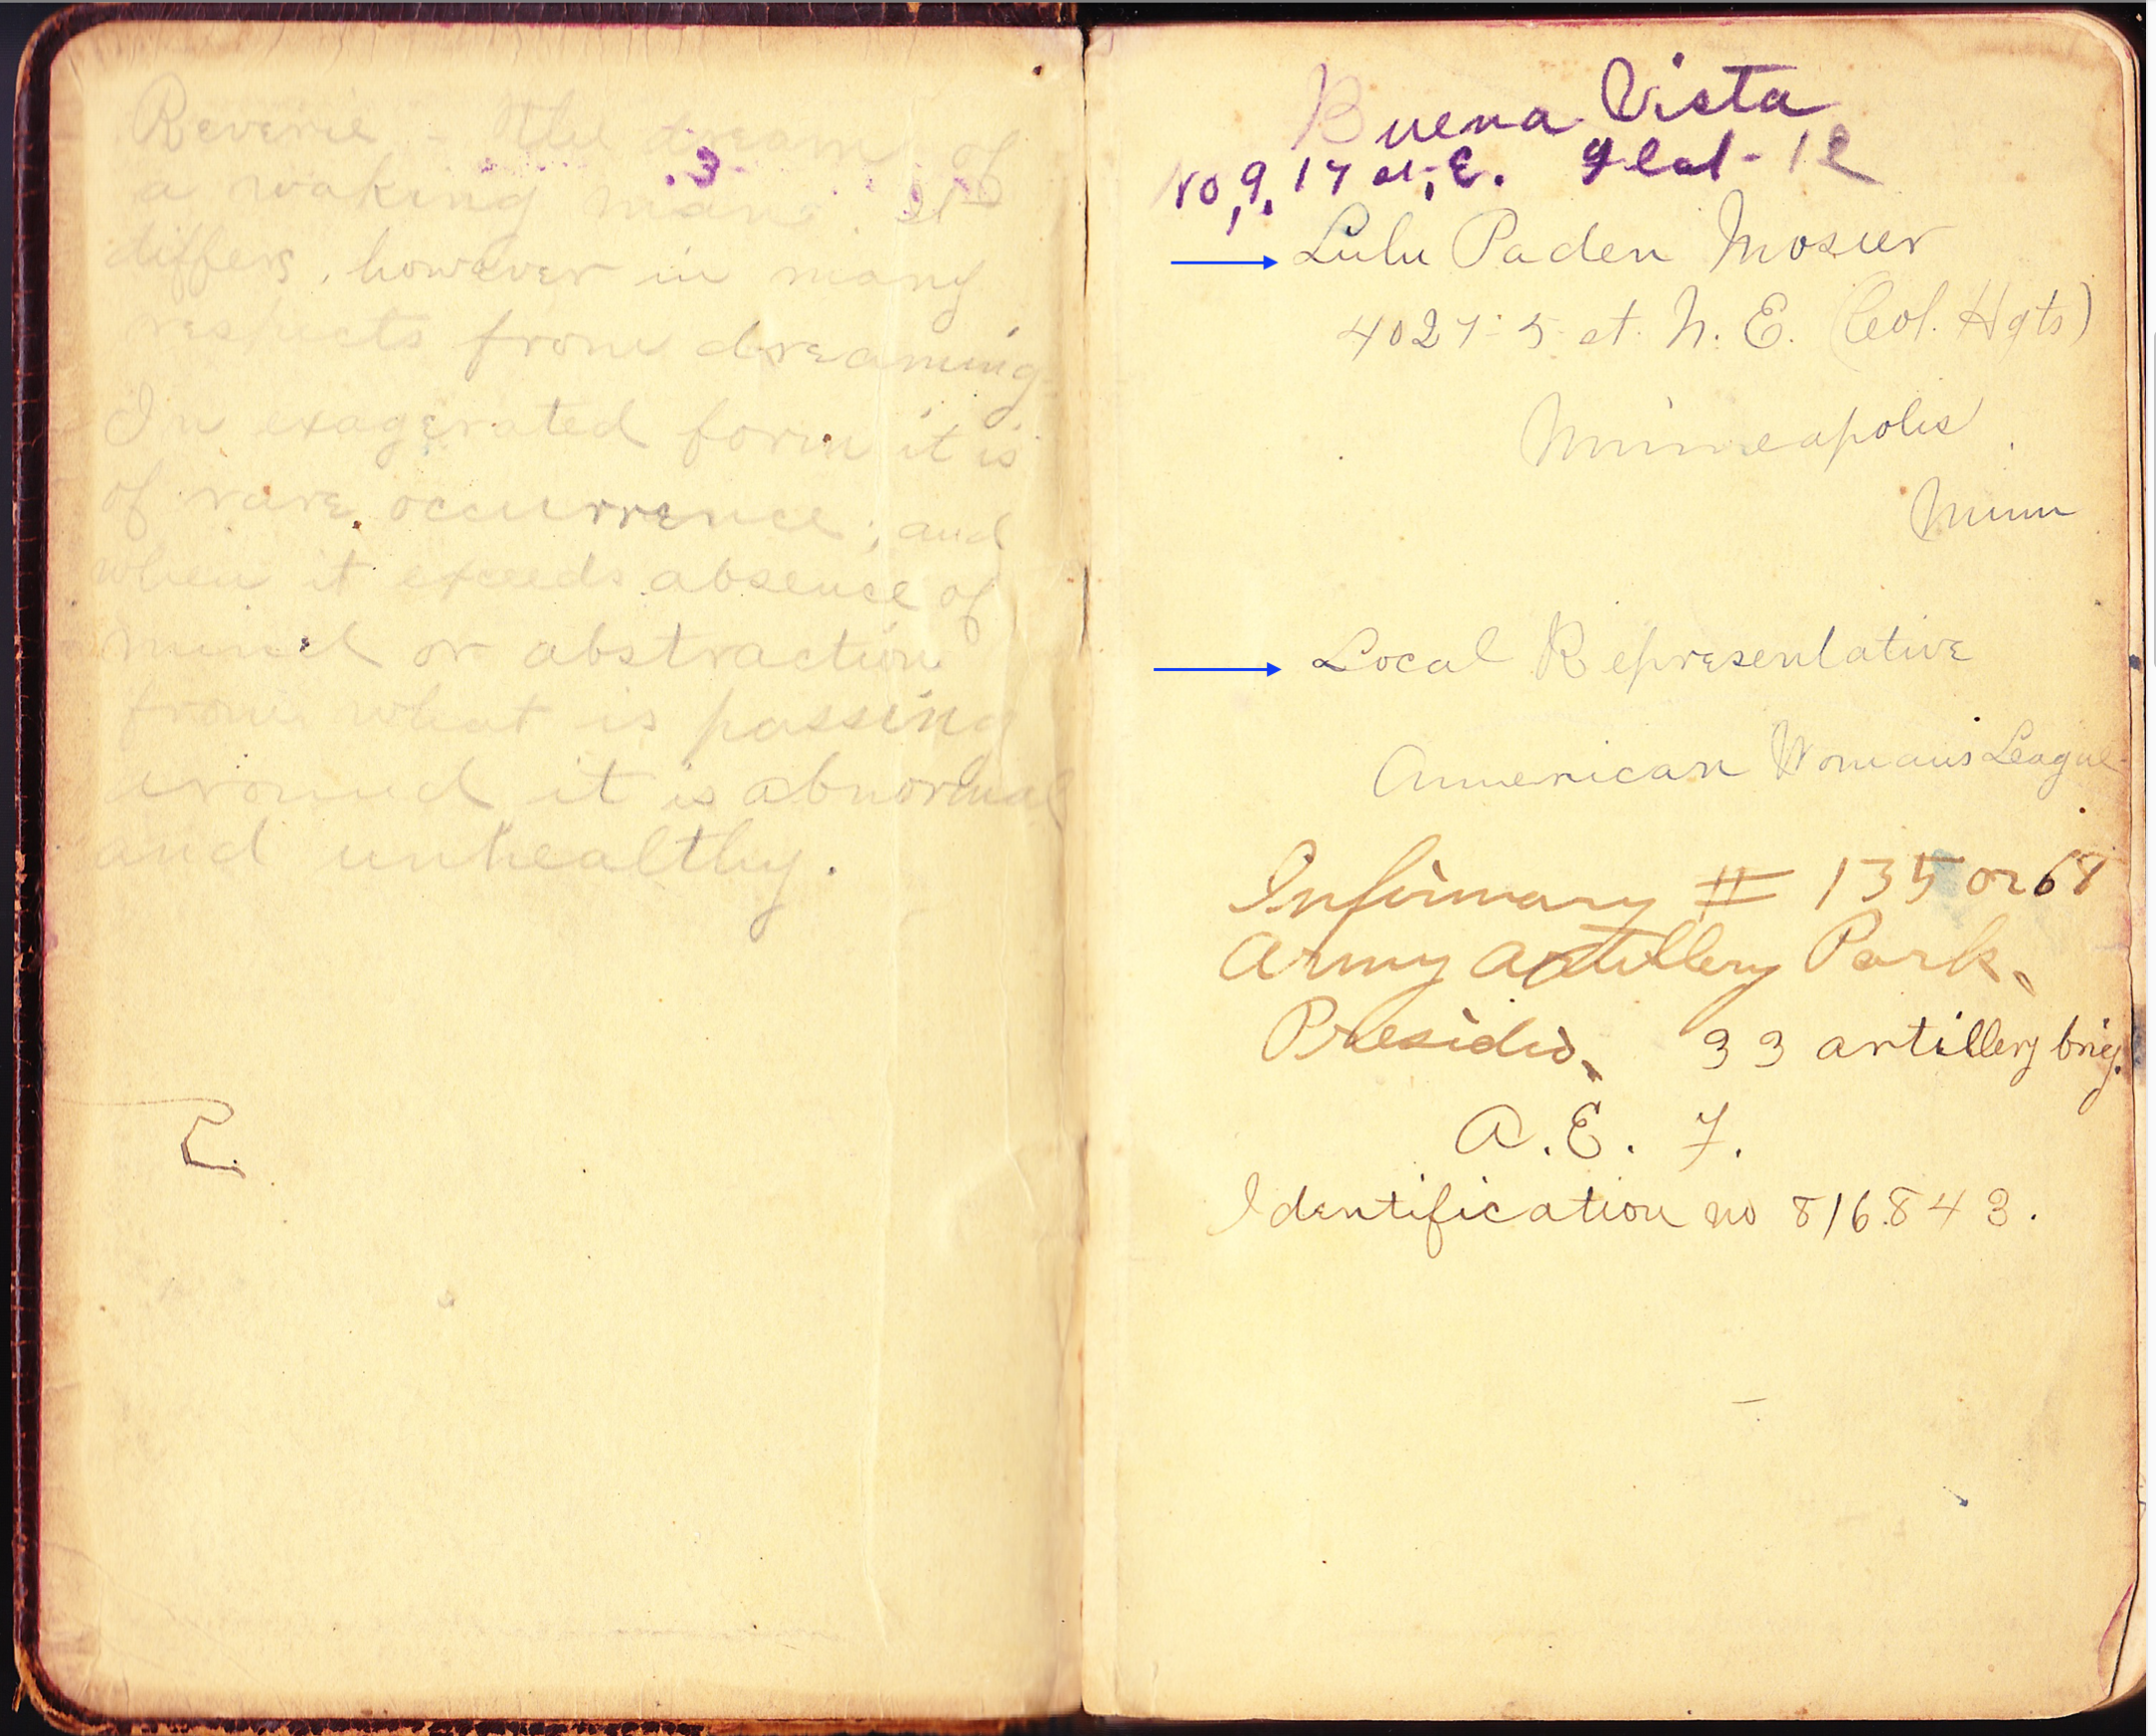 Reverie - the dream of
a waking man. It
differs, however in many
respects from dreaming.
In exagerated form it is
of rare occurrence; and
when it exceeds absence of
mind or abstraction
from what is passing
around it is abnormal
and unhealthy.
Buena Vista
No, 9, 17 st, E.
Lulu Paden Mosier
4027-5 st. N. E. (Col. Hgts)
Minneapolis
Minn
Local Representative
American Womans League
Infirmary # 135 or 68
Army Artillery Park,
Presidio, 33 artillery brig.
A. E. F.
Identification no 816843.